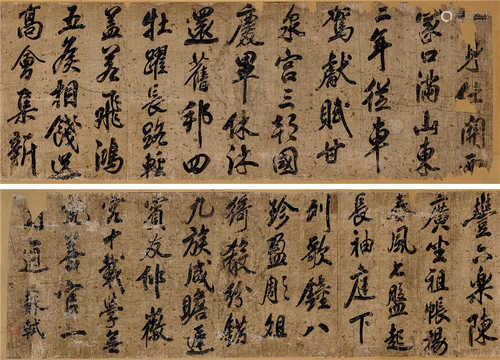 身仕關西
家口滿山東
二年從車
駕獻賦甘
泉宮三朝國
慶畢休沐
還舊邦四
牡躍長路輕
蓋若飛鴻
五侯相餞送
高會集新
豐六樂陳
廣坐祖帳揚
春風七盤起
長袖庭下
列歌鐘八
珍盈彫俎
綺殽紛錯
九族咸瞻遲
賓友仰徽
容十載學無
就善宦一
朝通 蘇軾